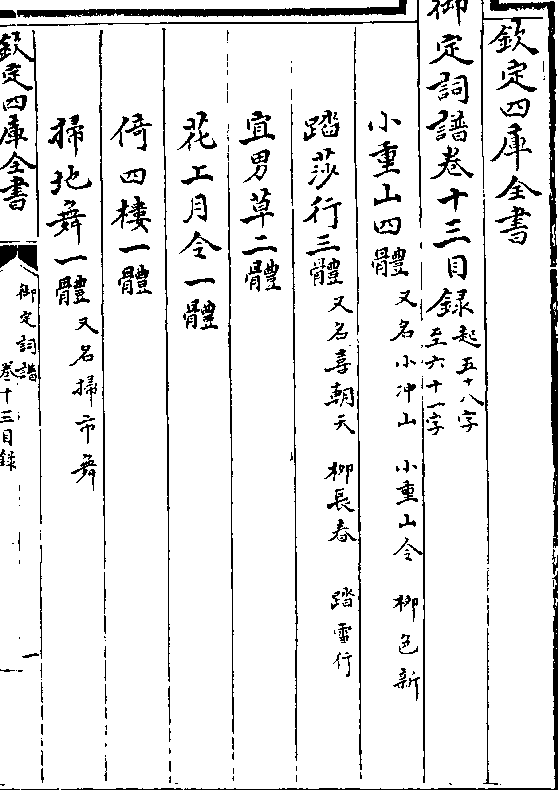 欽定四庫全書
御定詞譜卷十三目録起五十八字至六十一字
小重山四體又名小冲山 小重山令 柳色新
踏莎行三體又名喜朝天 柳長春 踏雪行
宜男草二體
花上月令一體
倚西樓一體
掃地舞一體又名掃市舞
欽定四庫全書
御定詞譜
卷十三目録
一